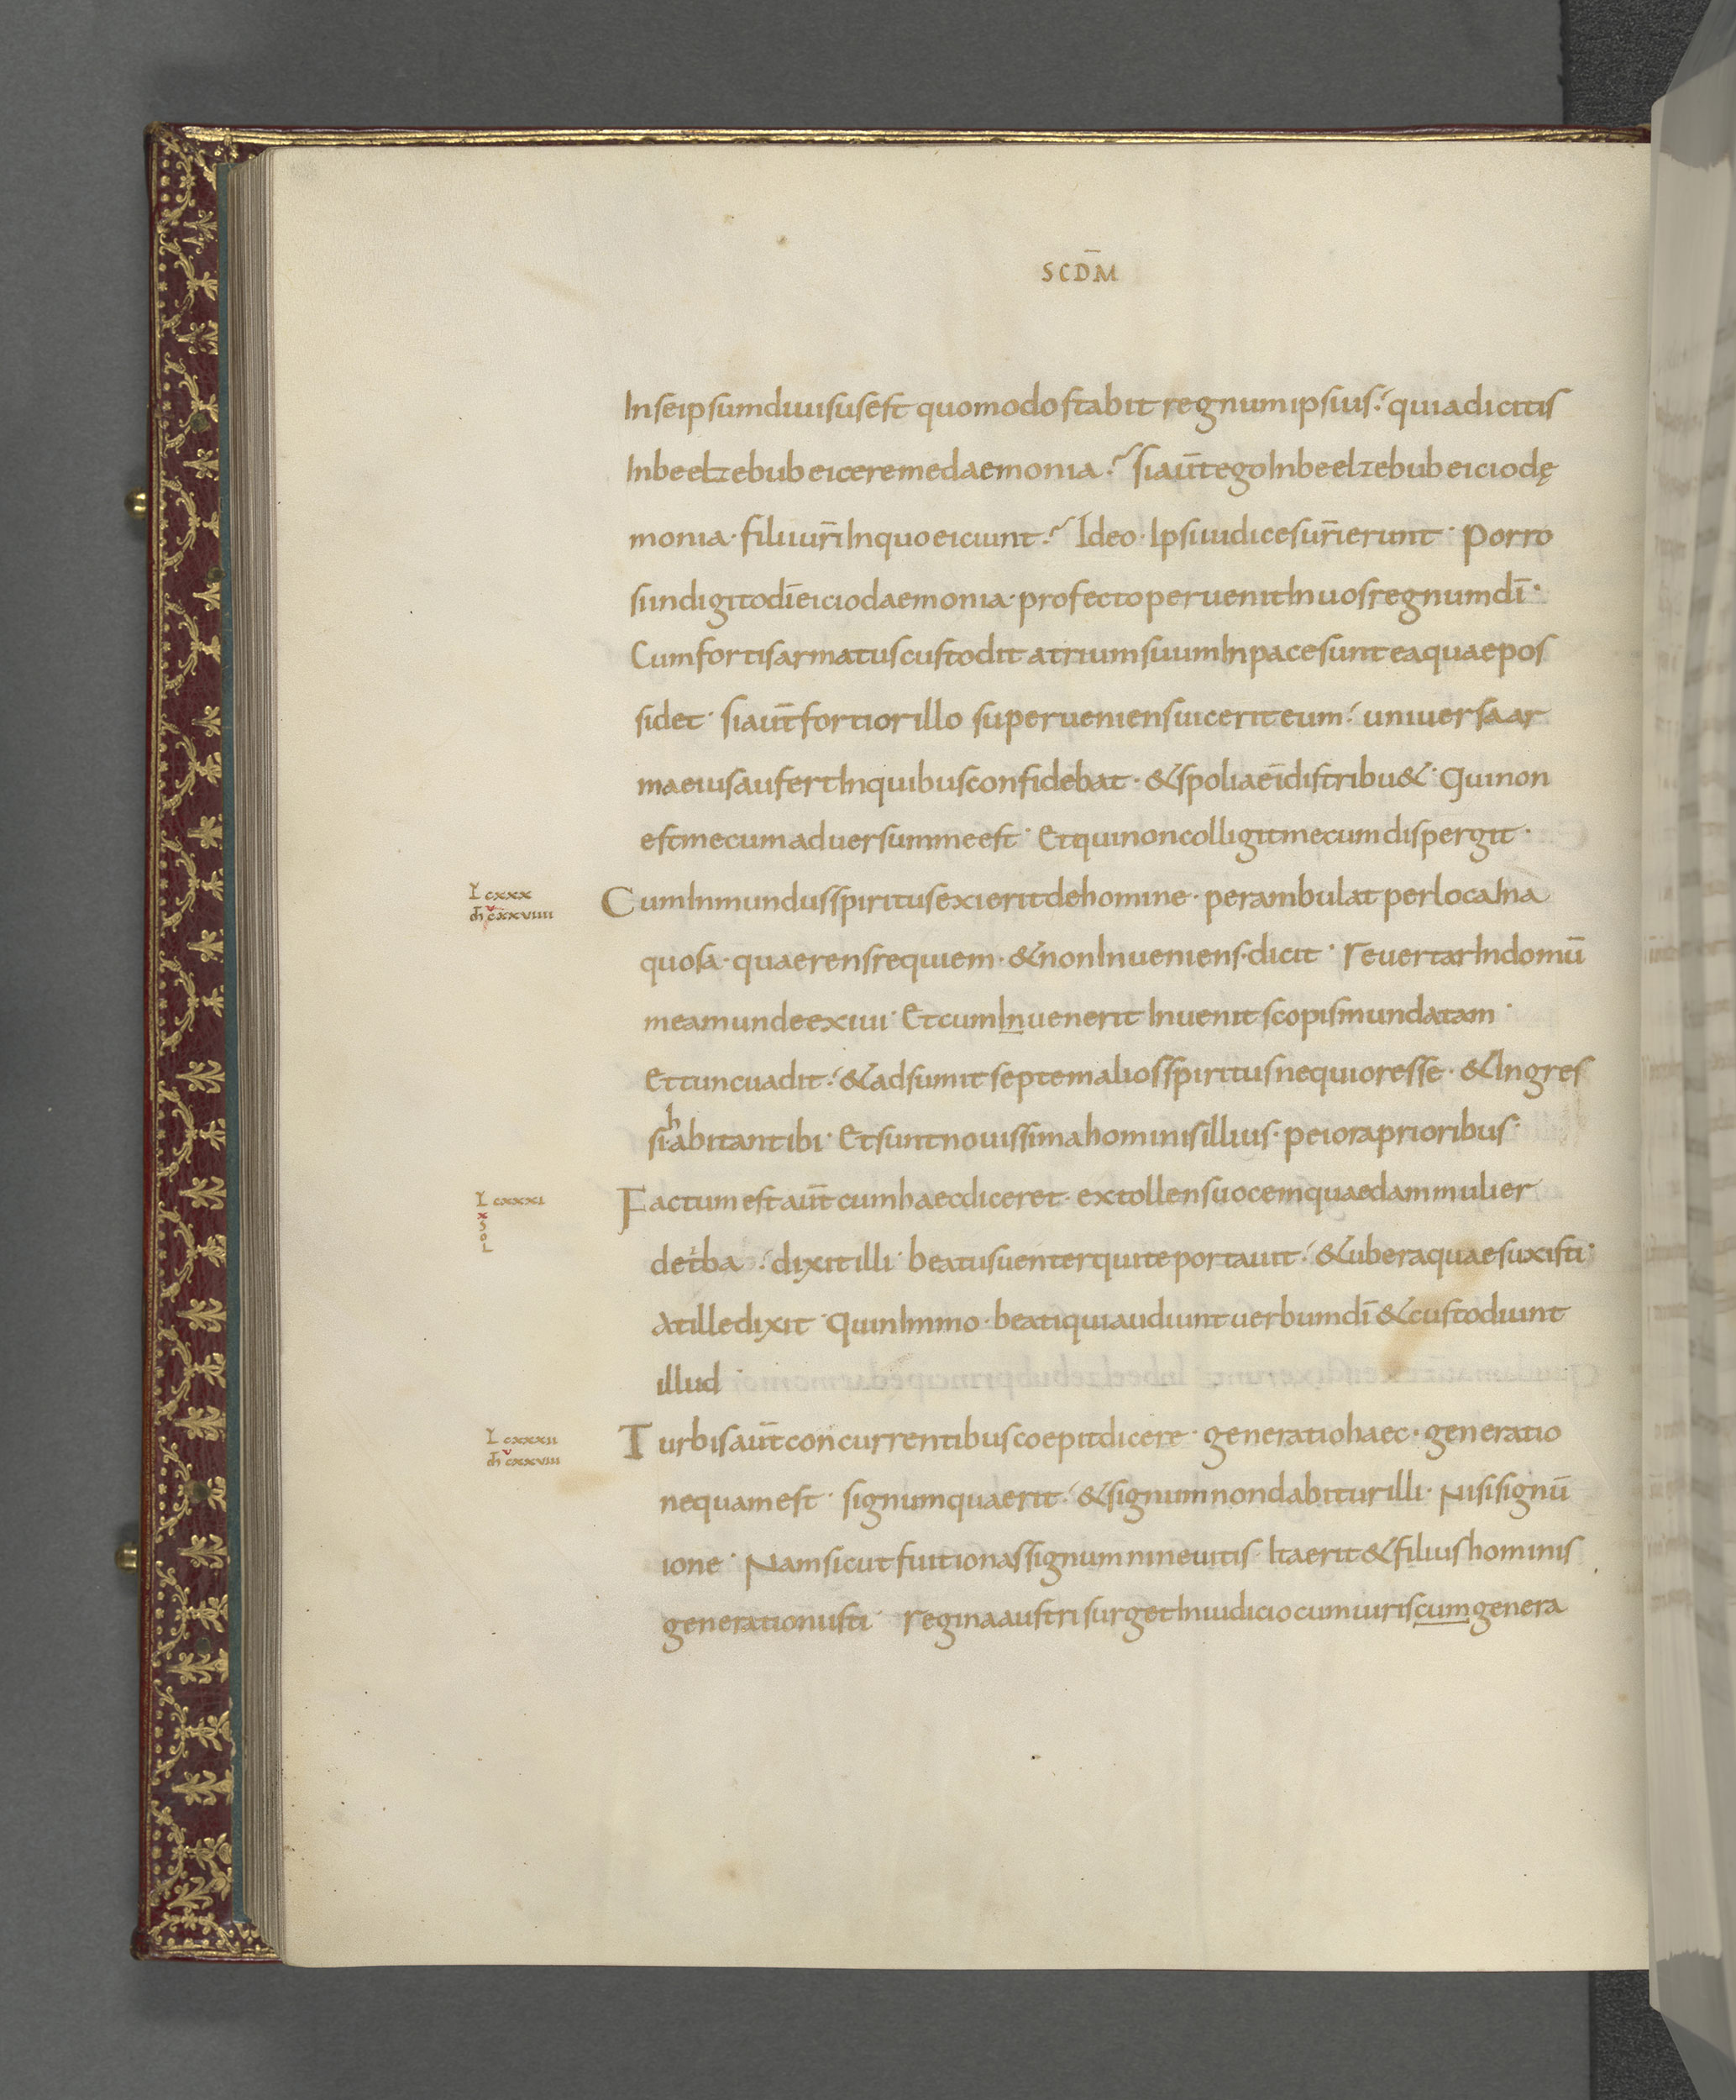 SCDM̄
Inseipsumdiuisusest quomodostabit regnumipsius? quiadicitis
Inbeelzebubeiceremedaemonia? siaūtegoInbeelzebubeiciodę
monia· filiiur̄iInquoeiciunt? Ideo· Ipsiiudicesur̄ierunt· Porro
siindigitodīeiciodaemonia· profectoperuenitInuosregnumdī·
Cumfortisarmatuscustodit atriumsuumInpacesunteaquaepos
sidet· siaūtfortiorillo superueniensuiceriteum· uniuersaar
maeiusaufertInquibusconfidebat· &spoliaeīdistribu&· Quinon
estmecumaduersummeest· Etquinoncolligitmecumdispergit·
CumInmundusspiritusexieritdehomine· perambulat perlocaIna
quosa· quaerensrequiem· &nonInueniens·dicit· reuertarIndomū
meamundeexiui· EtcumInuenerit Inuenitscopismundatam·
Ettuncuadit· &adsumitseptemaliosspiritusnequioresse· &Ingres
sihabitantibi· Etsuntnouissimahominisillius· peioraprioribus·
Factumestaūtcumhaecdiceret· extollensuocemquaedammulier
detba· dixitilli· beatusuenterquiteportauit· &uberaquaesuxisti·
Atilledixit· QuinImmo· beatiquiaudiuntuerbumdī&custodiunt
illud
Turbisaūtconcurrentibuscoepitdicere· generatiohaec· generatio
nequamest· signumquaerit· &signumnondabiturilli· Nisisignū
ione· Namsicutfuitionassignumnineuitis· Itaerit&filiushominis
generationiisti· reginaaustrisurgetIniudiciocumuiriscumgenera
L cxxx
m̄ cxxviiii
L cxxxi
x
SOL
L cxxxii
m̄ cxxviii